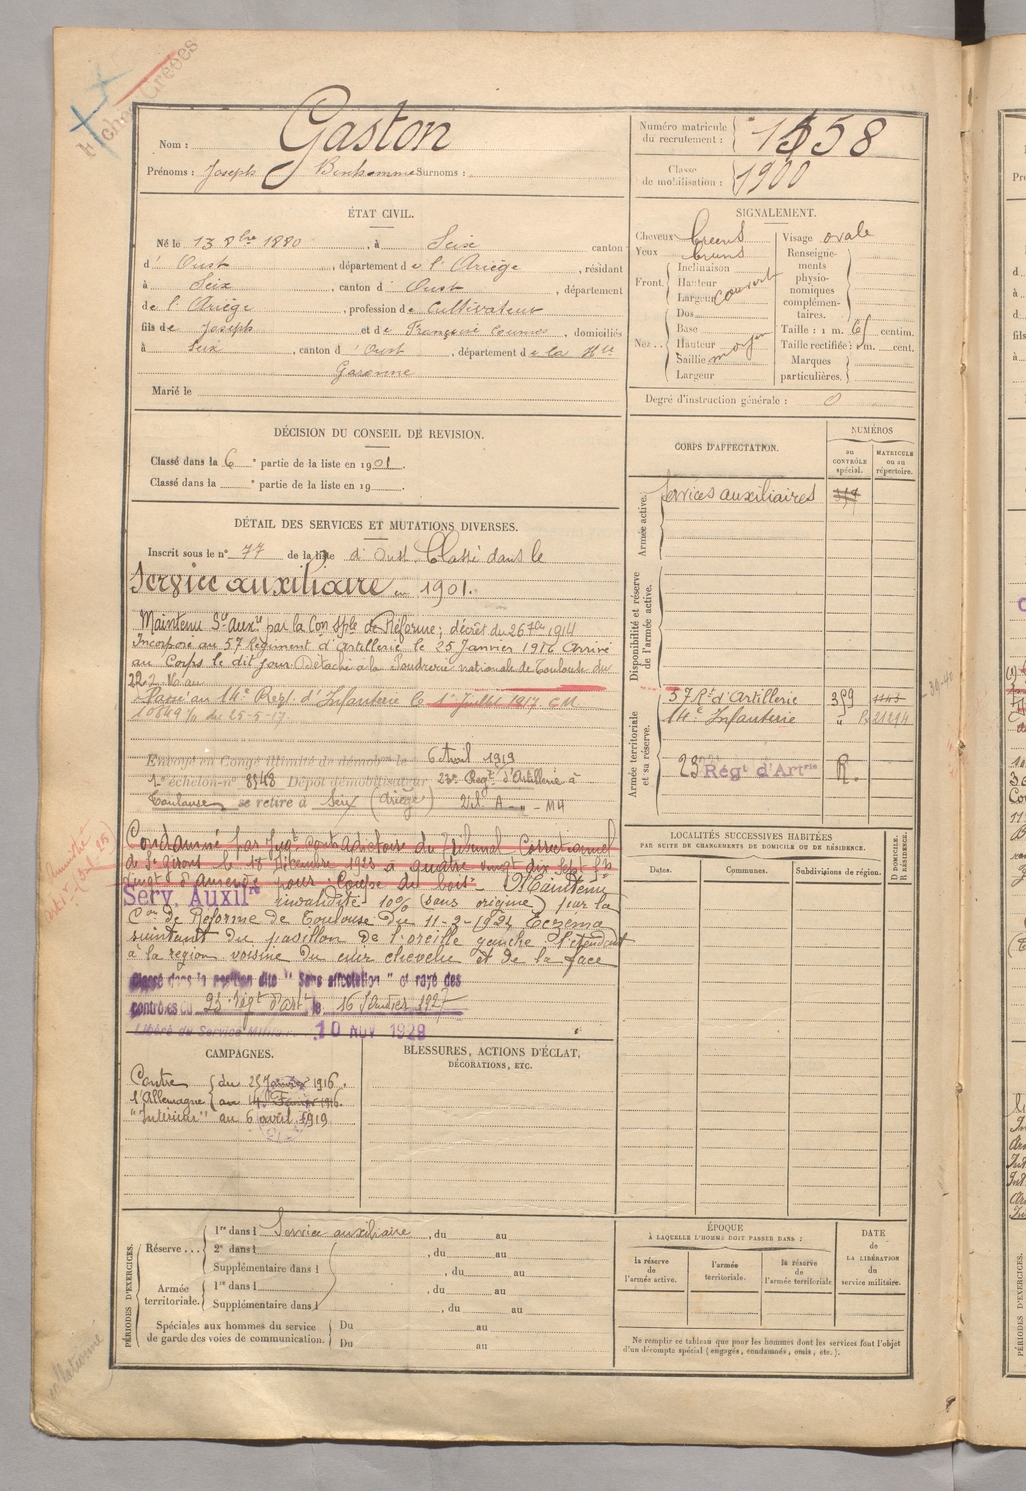 Fiches Créées
Nom : Gaston
Numéro matricule du recrutement : 1558
Prénoms : Joseph Bonhomme Surnoms :
Classe de mobilisation : 1900
ÉTAT CIVIL.
Né le 13 8bre 1880, à Seix canton
d' Oust, département de l'Ariège, résidant
à Seix, canton d' Oust, département
de l'Ariège, profession de Cultivateur
fils de Joseph et de Françoise Coumes, domiciliés
à Seix, canton d'Oust, département de la Hte
Garonne
Marié le
SIGNALEMENT.
Cheveux
Yeux bruns
Front. Inclinaison
Hauteur
Largeur couvert
Nez.. Dos
Base
Hauteur
Saillie moyen
Largeur
Visage ovale
Renseigne-
ments
physio-
nomiques
complémen-
taires.
Taille : 1 m. 61 centim.
Taille rectifiée : 1 m. cent.
Marques
particulières.
Degré d'instruction générale : 0
DÉCISION DU CONSEIL DE REVISION.
Classé dans la 6e partie de la liste en 1901.
Classé dans la e partie de la liste en 19
DÉTAIL DES SERVICES ET MUTATIONS DIVERSES.
Inscrit sous le n° 77 de la liste d'Oust. Classé dans le
Service auxiliaire en 1901.
Maintenu Sce auxre par la Con Sple de Réforme; décret du 26 7bre 1914
Incorporé au 57 Régiment d'Artillerie le 25 Janvier 1916 Arrivé
au Corps le dit jour. Détaché à la Poudrerie nationale de Toulouse du
Passé au 14e Regt d'Infanterie le 1er Juillet 1917. C M
10849/11 du 25-5-17.
Envoyé en Congé illimité de démobon le 6 Avril 1919
1er échelon-n° 8548 Dépôt démobilisateur 23e Regt d'Artillerie à
Toulouse se retire à Seix (Ariège)
Condamné par Jugt contradictoire du Tribunal Correctionnel
de St Girons le 18 Décembre 1923 à quatre vingt dix sept frs
vingt d'amende pour Coupe de bois - Maintenu
Serv. Auxilre invalidité 10% (sans origine) par la
Con de Réforme de Toulouse du 11-2-1924 Eczéma
suintant du pavillon de l'oreille gauche s'étendant
à la région voisine du cuir chevelu et de la face
Classé dans la position dite " Sans affectation " et rayé des
contrôles du 23 Régt d'Artie le 16 Janvier 1927
Libéré du Service Militaire 10 NOV 1928
CORPS D'AFFECTATION.
NUMÉROS
au CONTRÔLE spécial.
MATRICULE ou au répertoire.
Armée active.
Services auxiliaires
Disponibilité et réserve de l'armée active.
Armée territoriale et sa réserve.
57 Rt d'Artillerie 359 1143
14e Infanterie " R 21294
23 Régt d'Artrie R.
LOCALITÉS SUCCESSIVES HABITÉES
PAR SUITE DE CHANGEMENTS DE DOMICILE OU DE RÉSIDENCE.
Dates. Communes. Subdivisions de région.
D DOMICILE.
R RÉSIDENCE.
CAMPAGNES.
Contre du 25 Janvier 1916.
l'Allemagne au 14 Février 1916.
"Intérieur" au 6 avril 1919
BLESSURES, ACTIONS D'ÉCLAT,
DÉCORATIONS, ETC.
PÉRIODES D'EXERCICES.
Réserve... 1re dans l Service auxiliaire, du au
2e dans l , du au
Supplémentaire dans l , du au
Armée territoriale. 1re dans l , du au
Supplémentaire dans l , du au
Spéciales aux hommes du service
de garde des voies de communication.
Du au
Du au
ÉPOQUE
À LAQUELLE L'HOMME DOIT PASSER DANS :
la réserve de l'armée active.
l'armée territoriale.
la réserve de l'armée territoriale
DATE
de
LA LIBÉRATION
du
service militaire.
Ne remplir ce tableau que pour les hommes dont les services font l'objet
d'un décompte spécial (engagés, condamnés, omis, etc.).
PÉRIODES D'EXERCICES